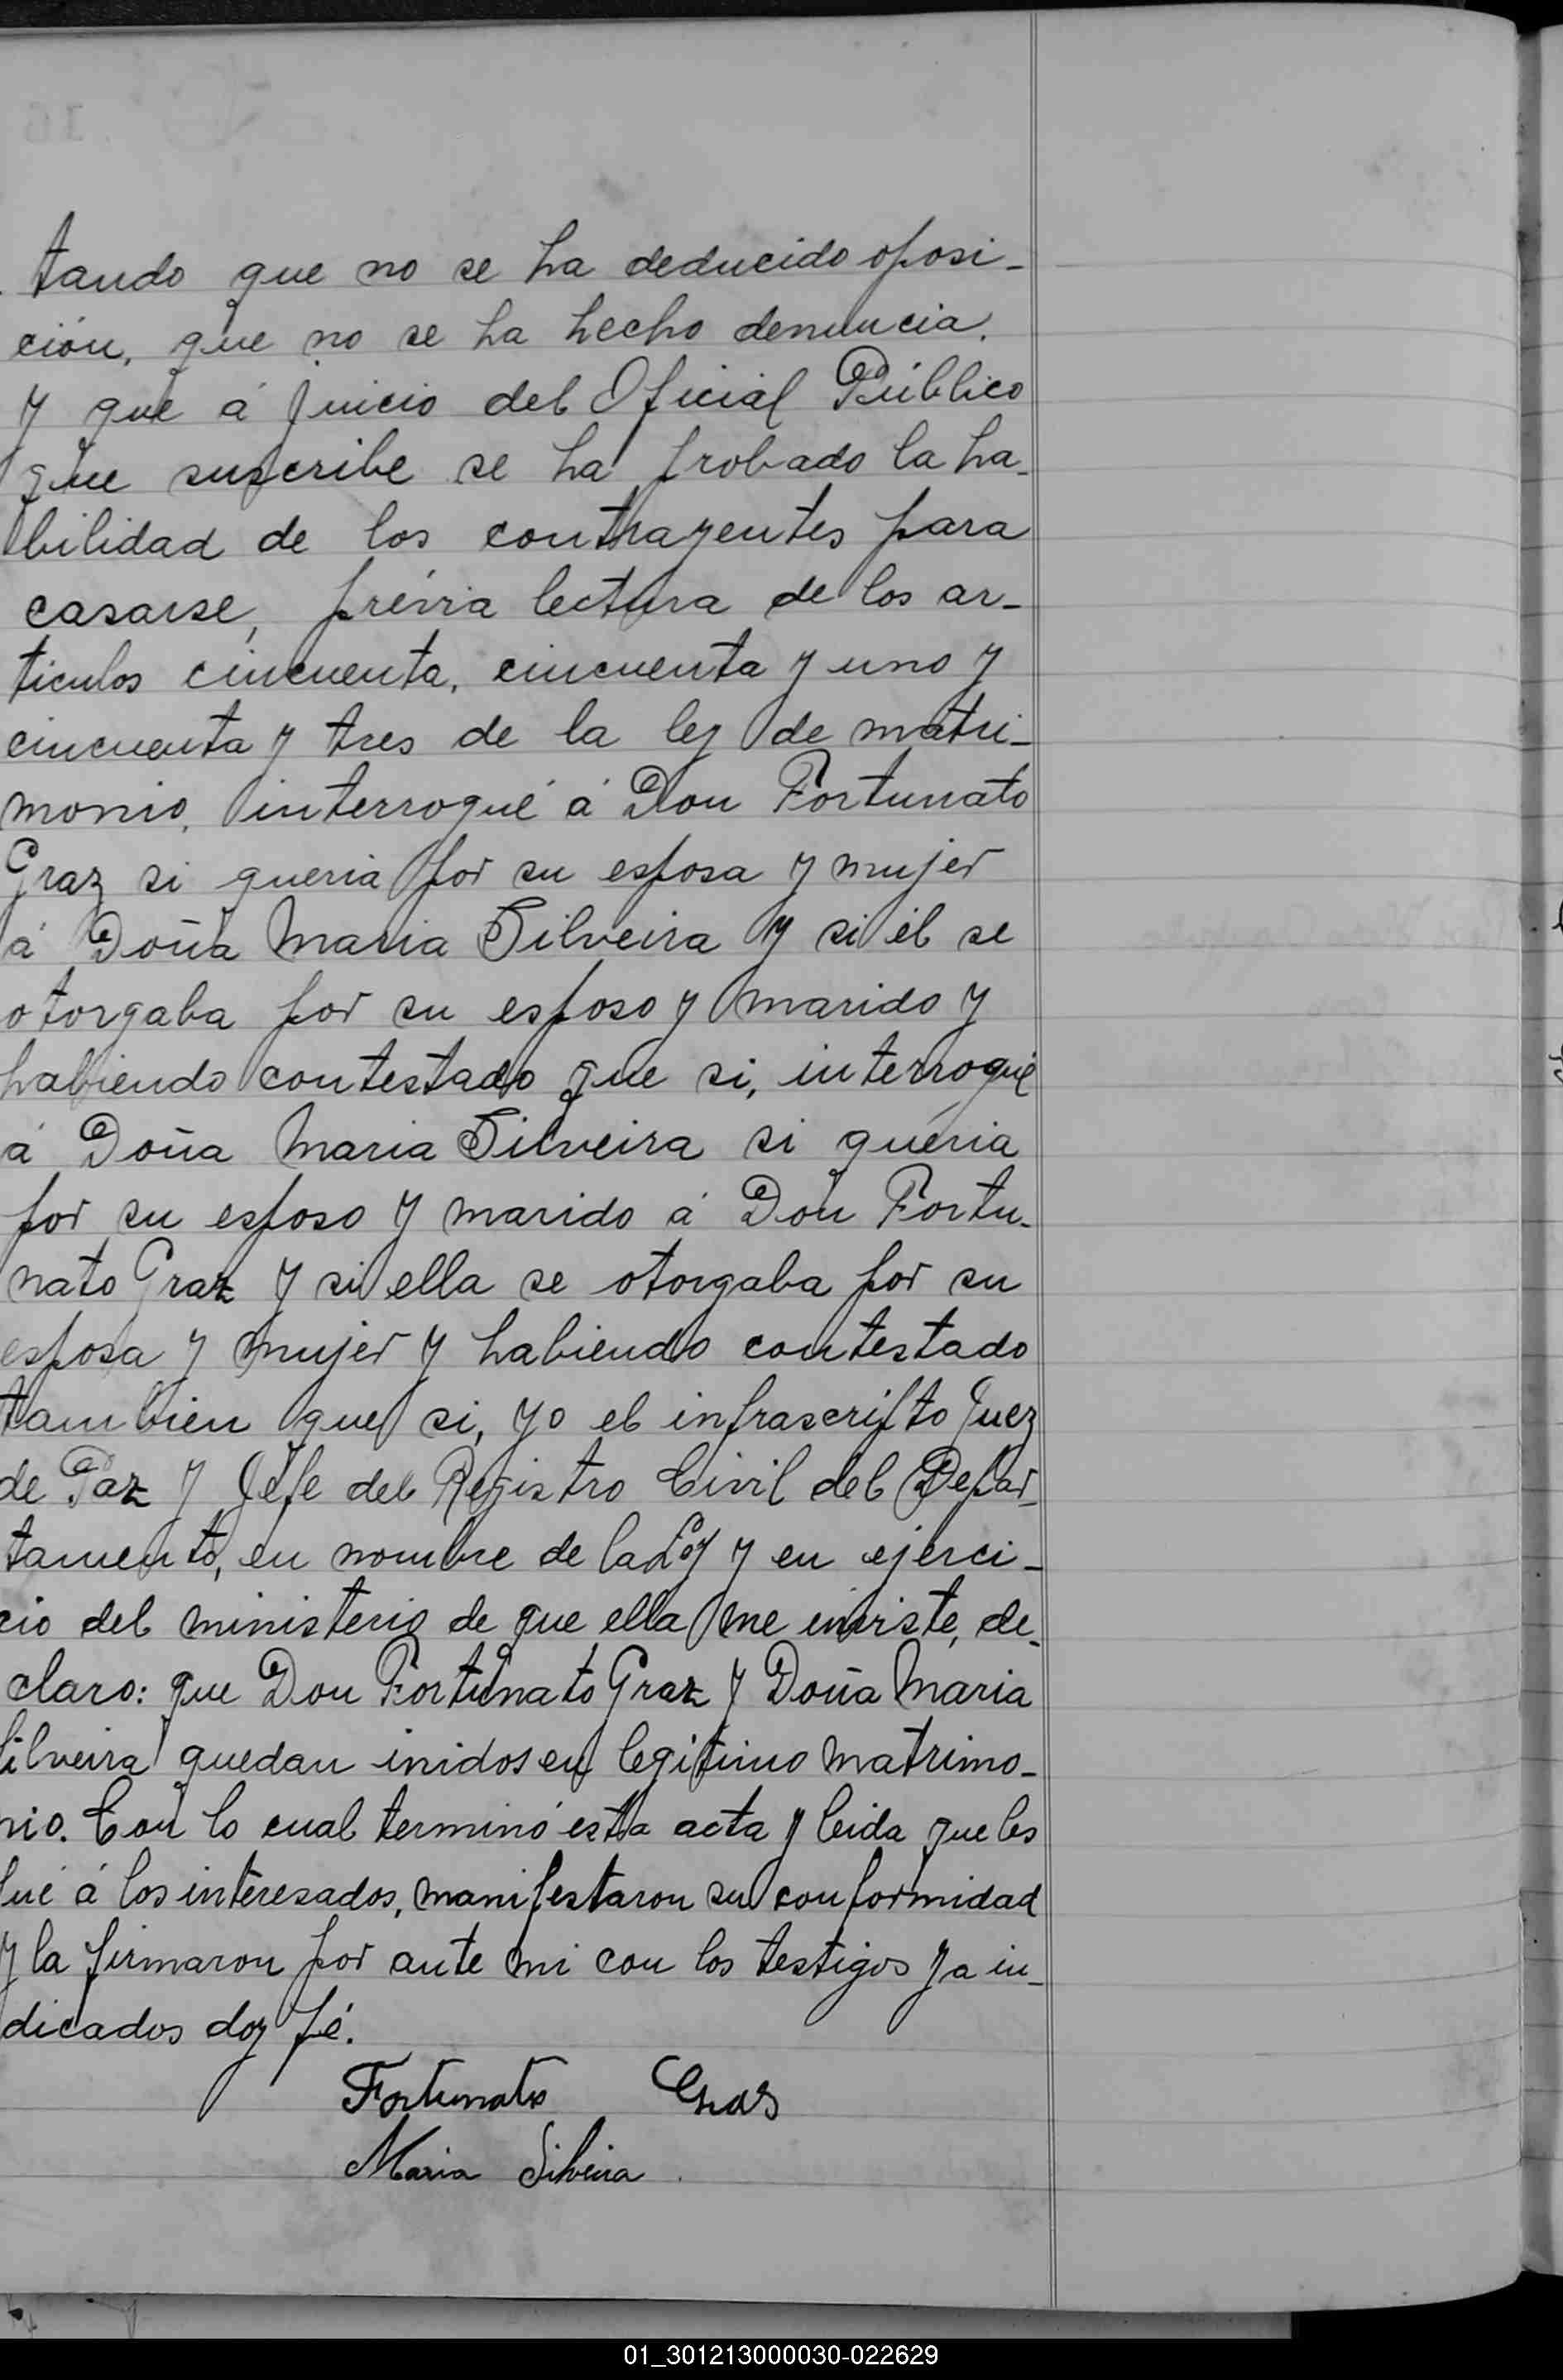 tando que no se ha deducido oposi-
ción, que no se ha hecho denuncia,
y que á juicio del Oficial Público
que suscribe se ha probado la ha-
bilidad de los contrayentes para
casarse, prévia lectura de los ar-
ticulos cincuenta, cincuenta y uno y
cincuenta y tres de la ley de matri-
monio, interrogué á Don Fortunato
Graz si queria por su esposa y mujer
á Doña Maria Silveira y si él se
otorgaba por su esposo y marido y
habiendo contestado que si, interrogué
á Doña Maria Silveira si queria
por su esposo y marido á Don Fortu-
nato Graz y si ella se otorgaba por su
esposa y mujer y habiendo contestado
tambien que si, yo el infrascripto Juez
de Paz y Jefe del Registro Civil del Depar-
tamento, en nombre de la Ley y en ejerci-
cio del ministerio de que ella me inviste, de-
claro: que Don Fortunato Graz y Doña Maria
Silveira quedan unidos en legitimo matrimo-
nio. Con lo cual terminó esta acta y leida que les
fué á los interesados, manifestaron su conformidad
y la firmaron por ante mi con los testigos ya in-
dicados doy fé.
Fortunato Gras
Maria Silveira
01_301213000030-022629